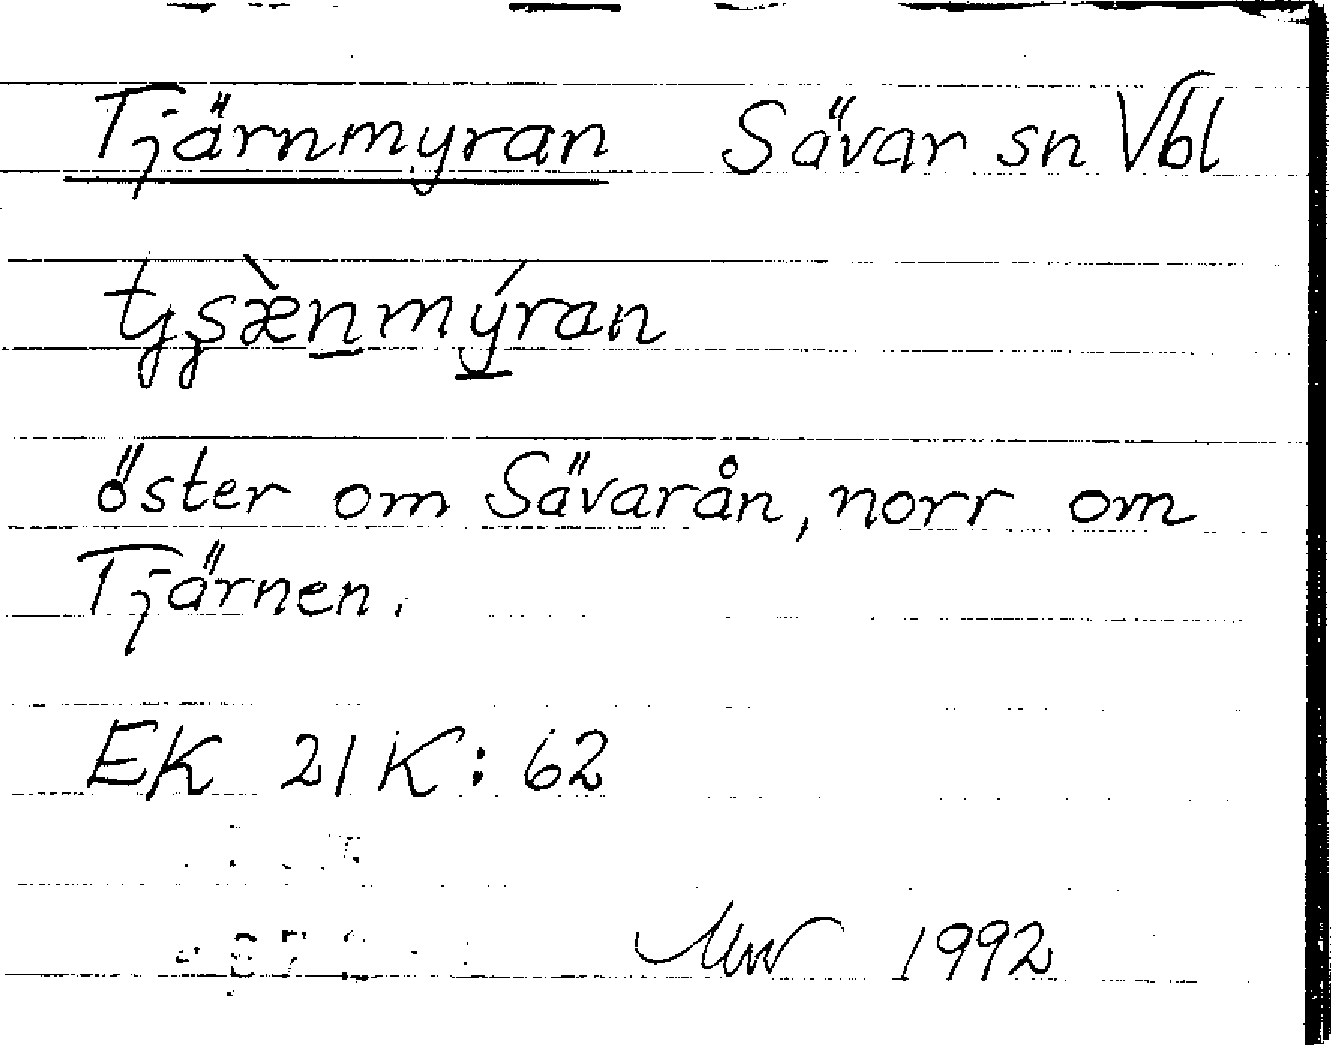 Tjärnmyran Sävar sn Vbl
öster om Sävarån, norr om
Tjärnen.
EK 21 K: 62
1992